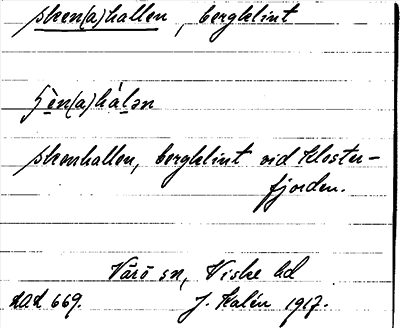 sken(a)hallen, bergklint
ʃèn(a)hálən
skenhallen, bergklint vid Kloster-
fjorden.
Värö sn, Viske hd
DAL 669. J. Kalén 1917.